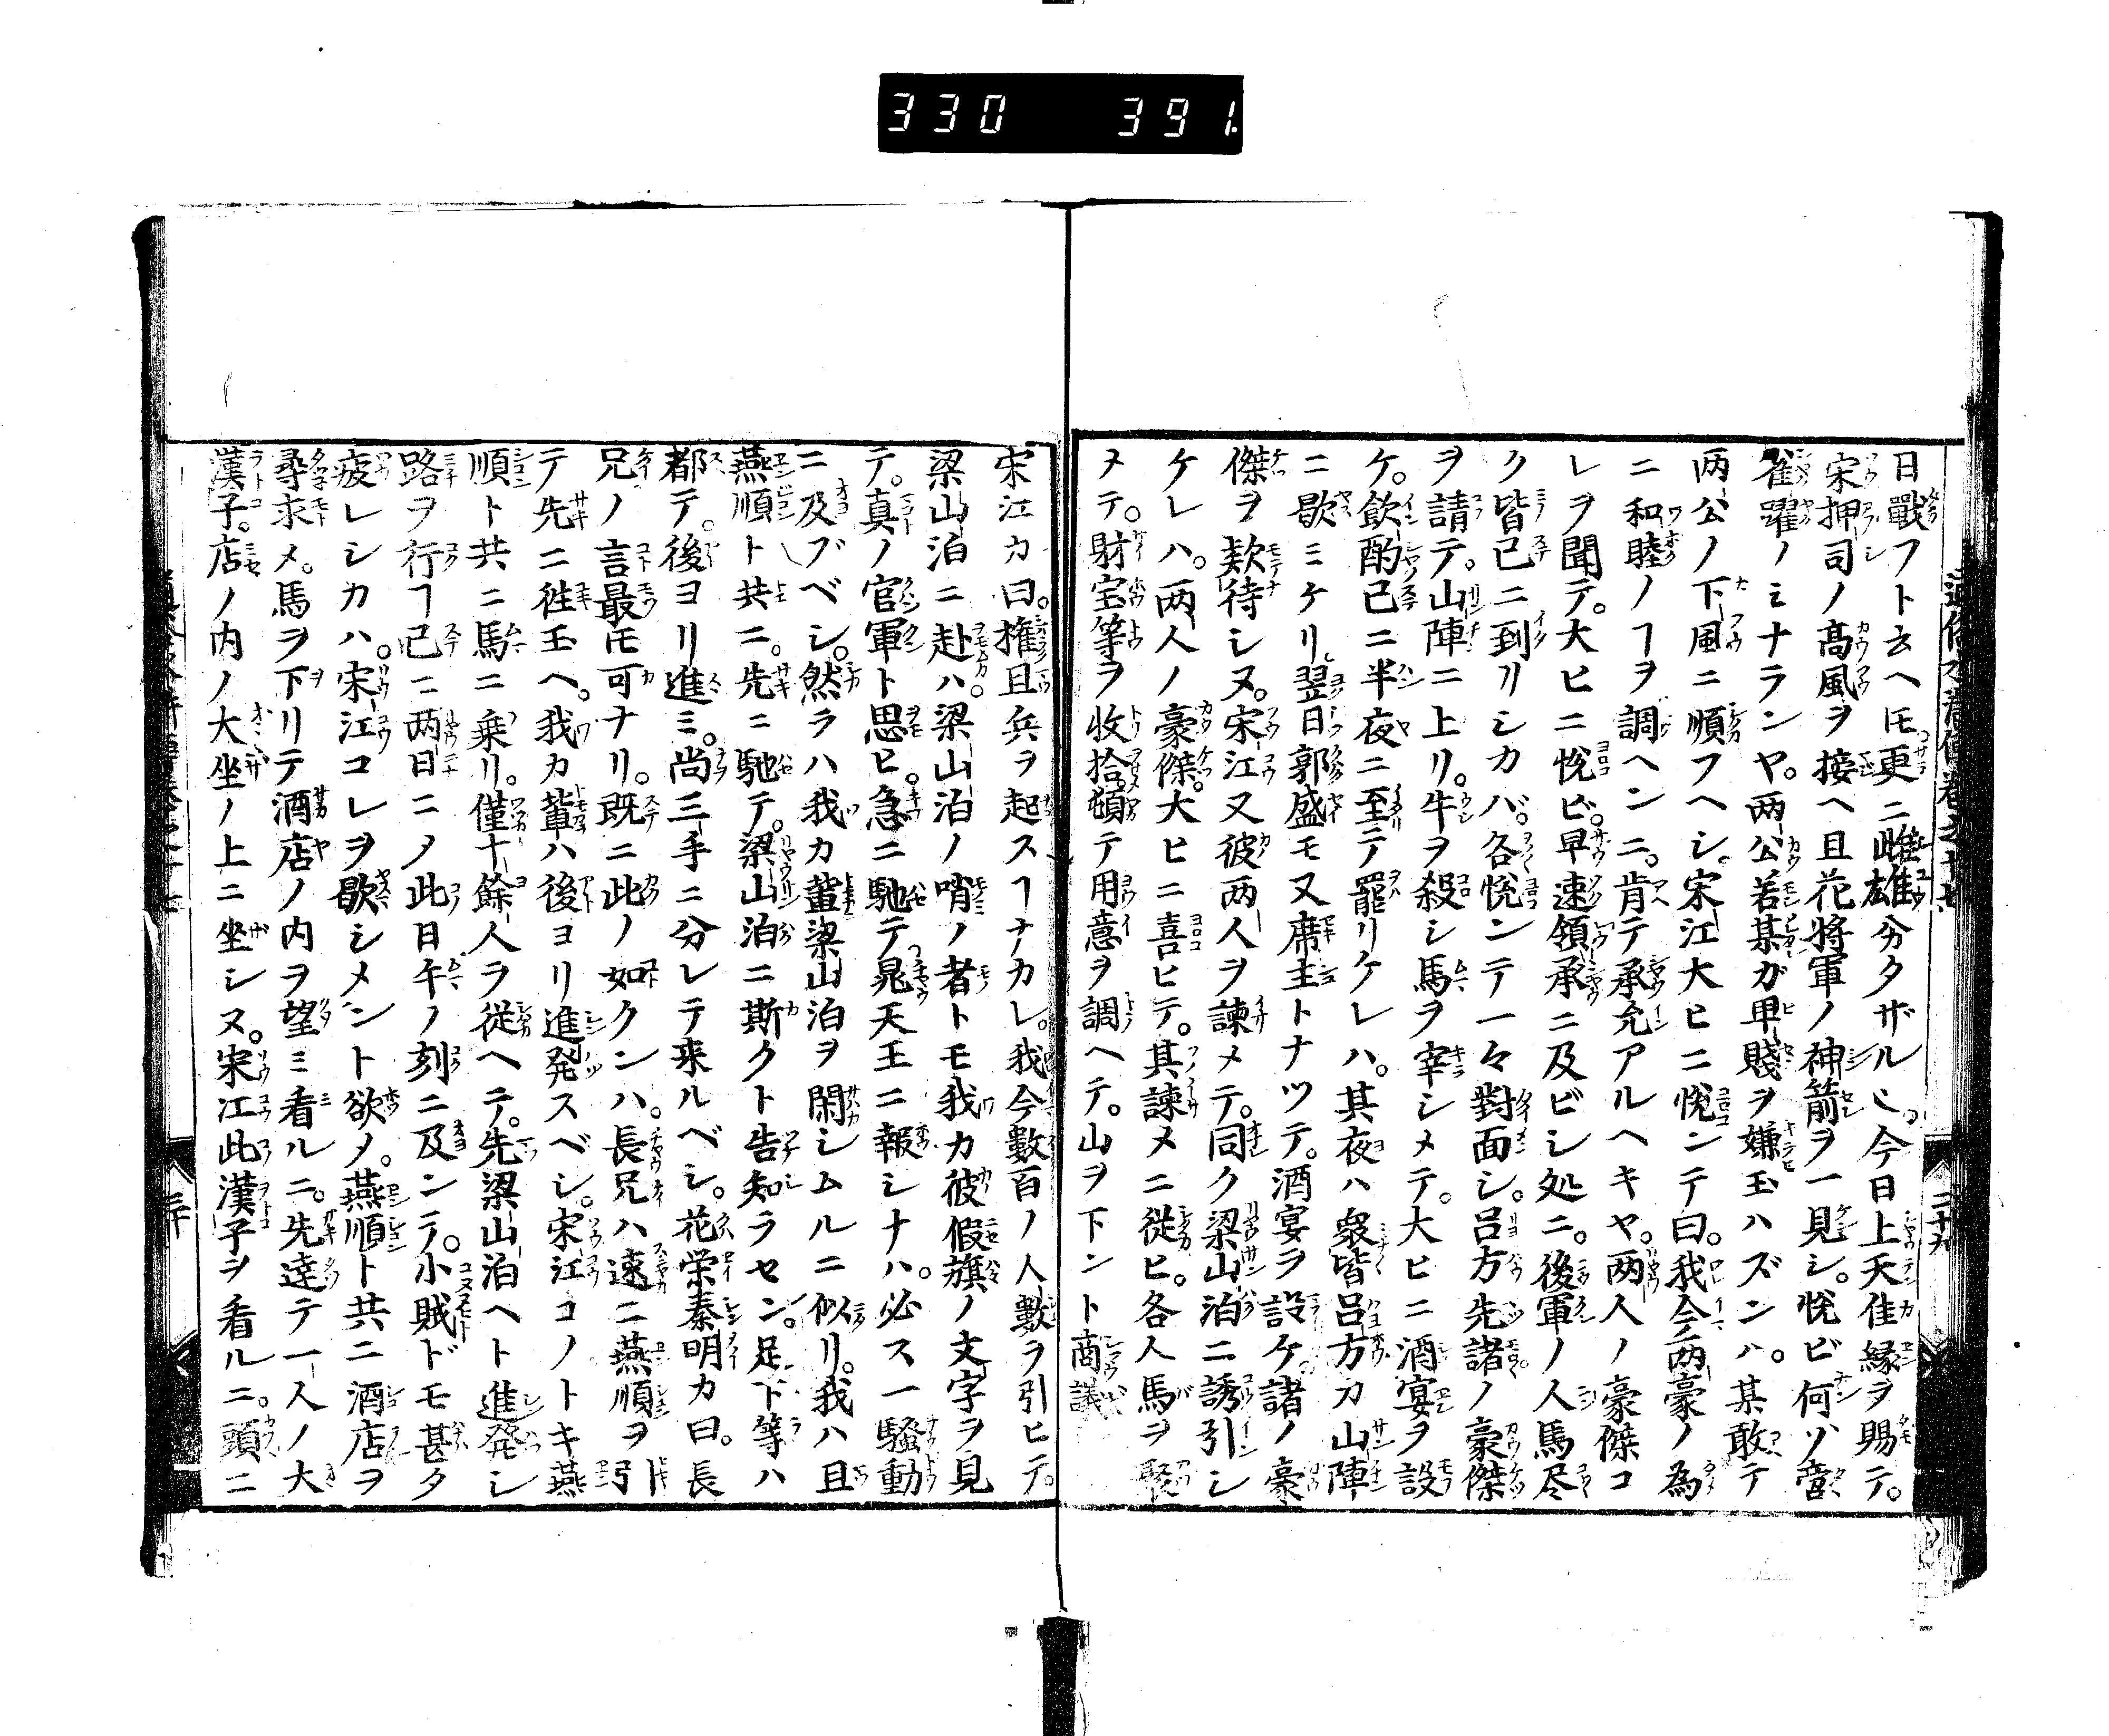 330 391.
日戰フト云ヘ𪜈更ニ雌雄分タザル𪜈。今日上天佳縁ヲ賜テ。
宋押司ノ高風ヲ接ヘ且花将軍ノ神箭ヲ一見シ。悦ビ何ソ啻
雀躍ノミナランヤ。两公若某ガ卑賤ヲ嫌玉ハズンハ。某敢テ
两公ノ下風ニ順フヘシ。宋江大ヒニ悦ンテ曰。我今两豪ノ為
ニ和睦ノヿヲ調ヘンニ。肯テ承允アルヘキヤ。两人ノ豪傑コ
レヲ聞テ。大ヒニ悦ビ。早速領承ニ及ビシ処ニ。後軍ノ人馬尽
ク皆已ニ到リシカバ。各悦ンテ一々對面シ。呂方先諸ノ豪傑
ヲ請テ。山陣ニ上リ。牛ヲ殺シ馬ヲ宰シメテ。大ヒニ酒宴ヲ設
ケ。飲酌已ニ半夜ニ至テ罷リケレハ。其夜ハ衆皆呂方カ山陣
ニ歇ミケリ翌日郭盛モ又席主トナツテ。酒宴ヲ設ケ。諸ノ豪
傑ヲ欵待シヌ。宋江又彼两人ヲ諫メテ。同ク梁山泊ニ誘引シ
ケレハ。两人ノ豪傑。大ヒニ喜ヒテ。其諫メニ従ヒ。各人馬ヲ聚
メテ。財宝等ヲ收拾頓テ用意ヲ調ヘテ。山ヲ下ントト商議
宋江カ曰。権且兵ヲ起スヿナカレ。我今數百ノ人數ヲ引ヒテ。
梁山泊ニ赴ハ。梁山泊ノ哨ノ者トモ我カ彼假旗ノ文字ヲ見
テ。真ノ官軍ト思ヒ。急ニ馳テ晁天王ニ報シナハ。必ス一騒動
ニ及ブベシ。然ラハ我カ軰梁山泊ヲ閙シムルニ似リ。我ハ且
燕順ト共ニ。先ニ馳テ。梁山泊ニ斯クト告知ラセン。足下等ハ
都テ。後ヨリ進ミ。尚三手ニ分レテ来ルベシ。花栄秦明カ曰。長
兄ノ言最𪜈可ナリ。既ニ此ノ如クンハ。長兄ハ速ニ燕順ヲ引
テ先ニ徃玉ヘ。我カ軰ハ後ヨリ進発スベシ。宋江コノトキ燕
順ト共ニ馬ニ乗リ。僅十餘人ヲ従ヘテ。先梁山泊ヘト進発シ
路ヲ行ヿ已ニ两日ニメ此日午ノ刻ニ及ンテ。小賊ドモ甚タ
疲レシカハ。宋江コレヲ歇シメント欲メ。燕順ト共ニ酒店ヲ
尋求メ。馬ヲ下リテ酒店ノ内ヲ望ミ看ルニ。先達テ一人ノ大
漢子。店ノ内ノ大坐ノ上ニ坐シヌ。宋江此漢子ヲ看ルニ。頭ニ
三十